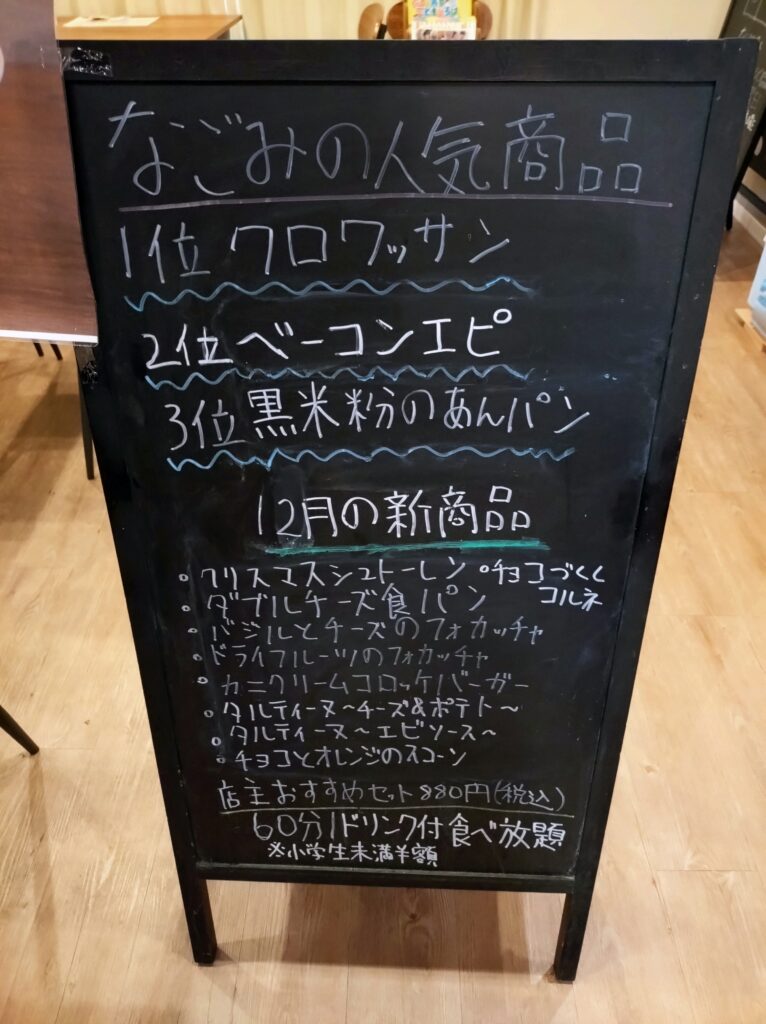 なごみの人気商品
1位 クロワッサン
2位 ベーコンエピ
3位 黒米粉のあんパン
12月の新商品
○クリスマスシュトーレン ○チョコづくし
コルネ
○ダブルチーズ食パン
○バジルとチーズのフォカッチャ
○ドライフルーツのフォカッチャ
○カニクリームコロッケバーガー
○タルティーヌ～チーズ&ポテト～
○タルティーヌ～エビソース～
○チョコとオレンジのスコーン
店主おすすめセット880円(税込)
60分1ドリンク付食べ放題
※小学生未満半額